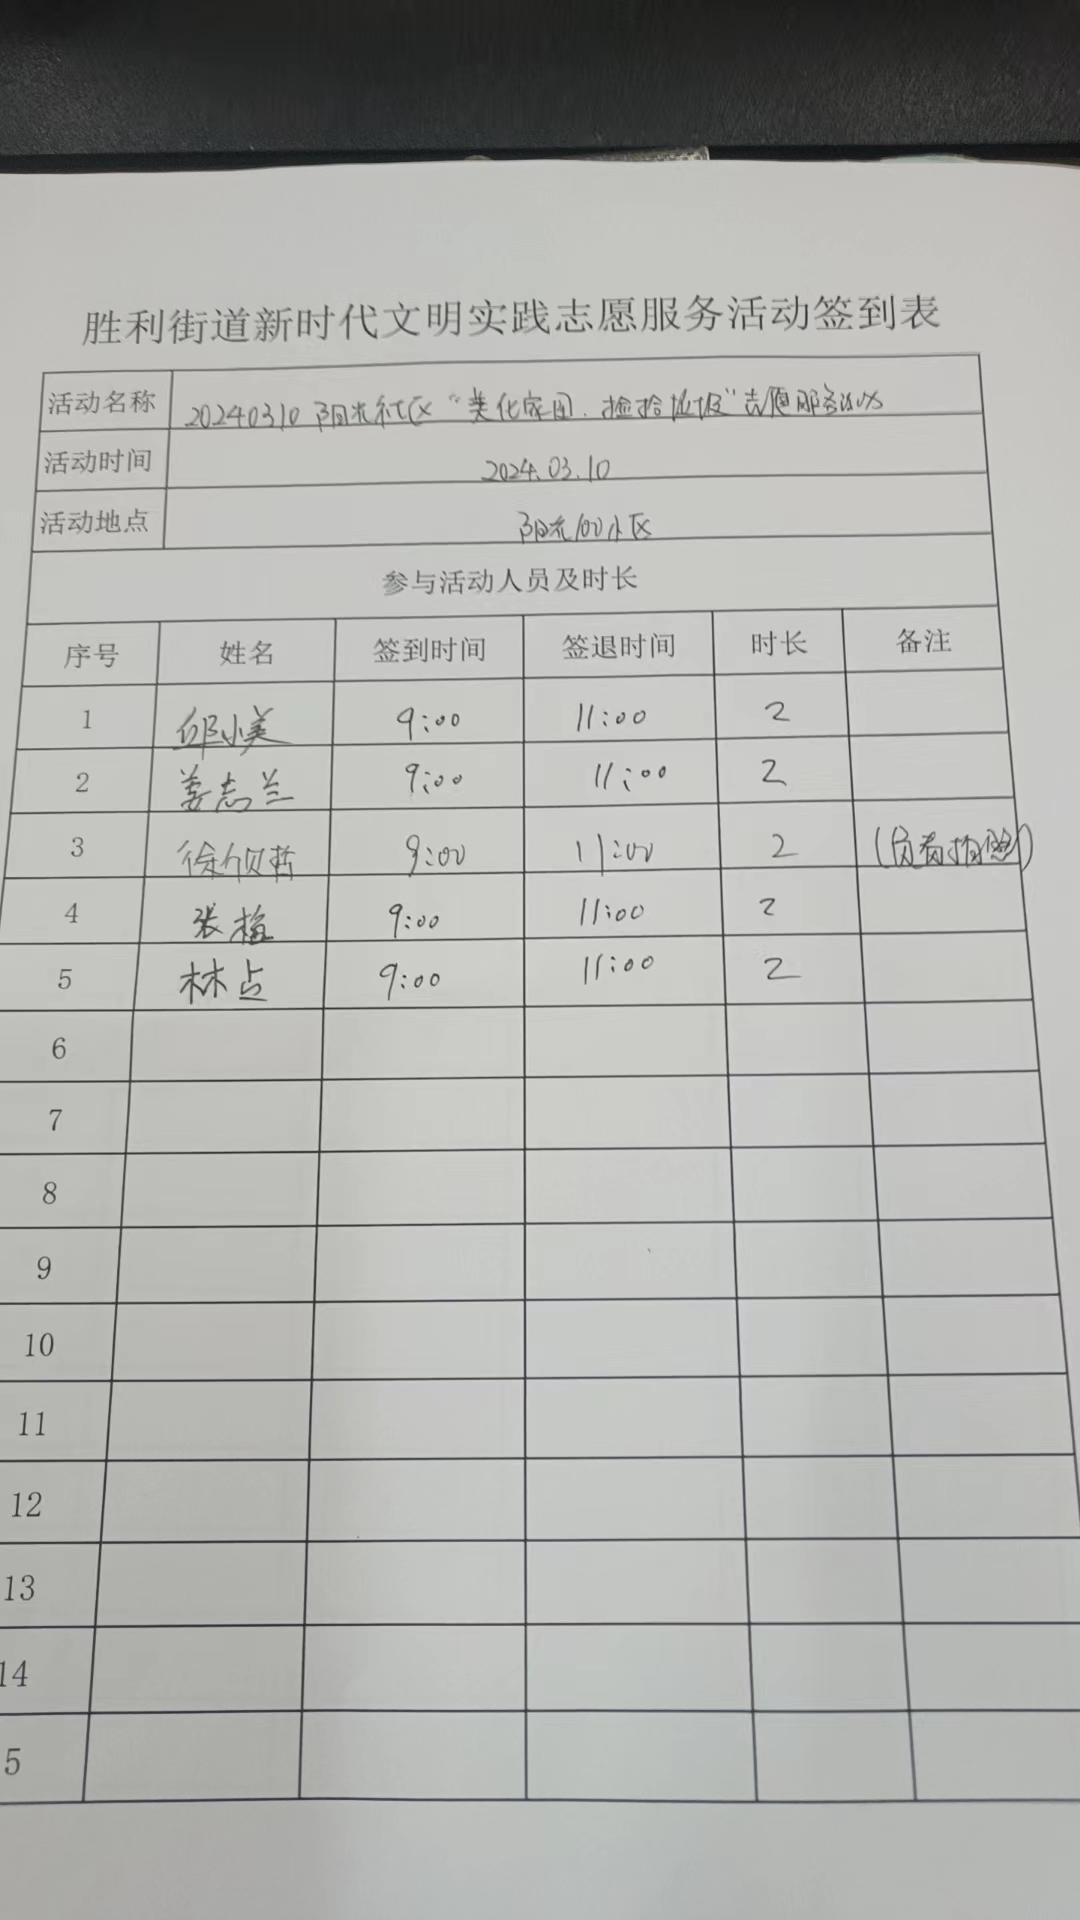 胜利街道新时代文明实践志愿服务活动签到表
活动名称 20240310阳光社区“美化家园.捡拾垃圾”志愿服务活动
活动时间 2024.03.10
活动地点 阳光100小区
参与活动人员及时长
序号 姓名 签到时间 签退时间 时长 备注
1 邱小美 9:00 11:00 2
2 姜志兰 9:00 11:00 2
3 徐 哲 9:00 11:00 2 (负责拍照)
4 张 9:00 11:00 2
5 林占 9:00 11:00 2
6
7
8
9
10
11
12
13
14
5